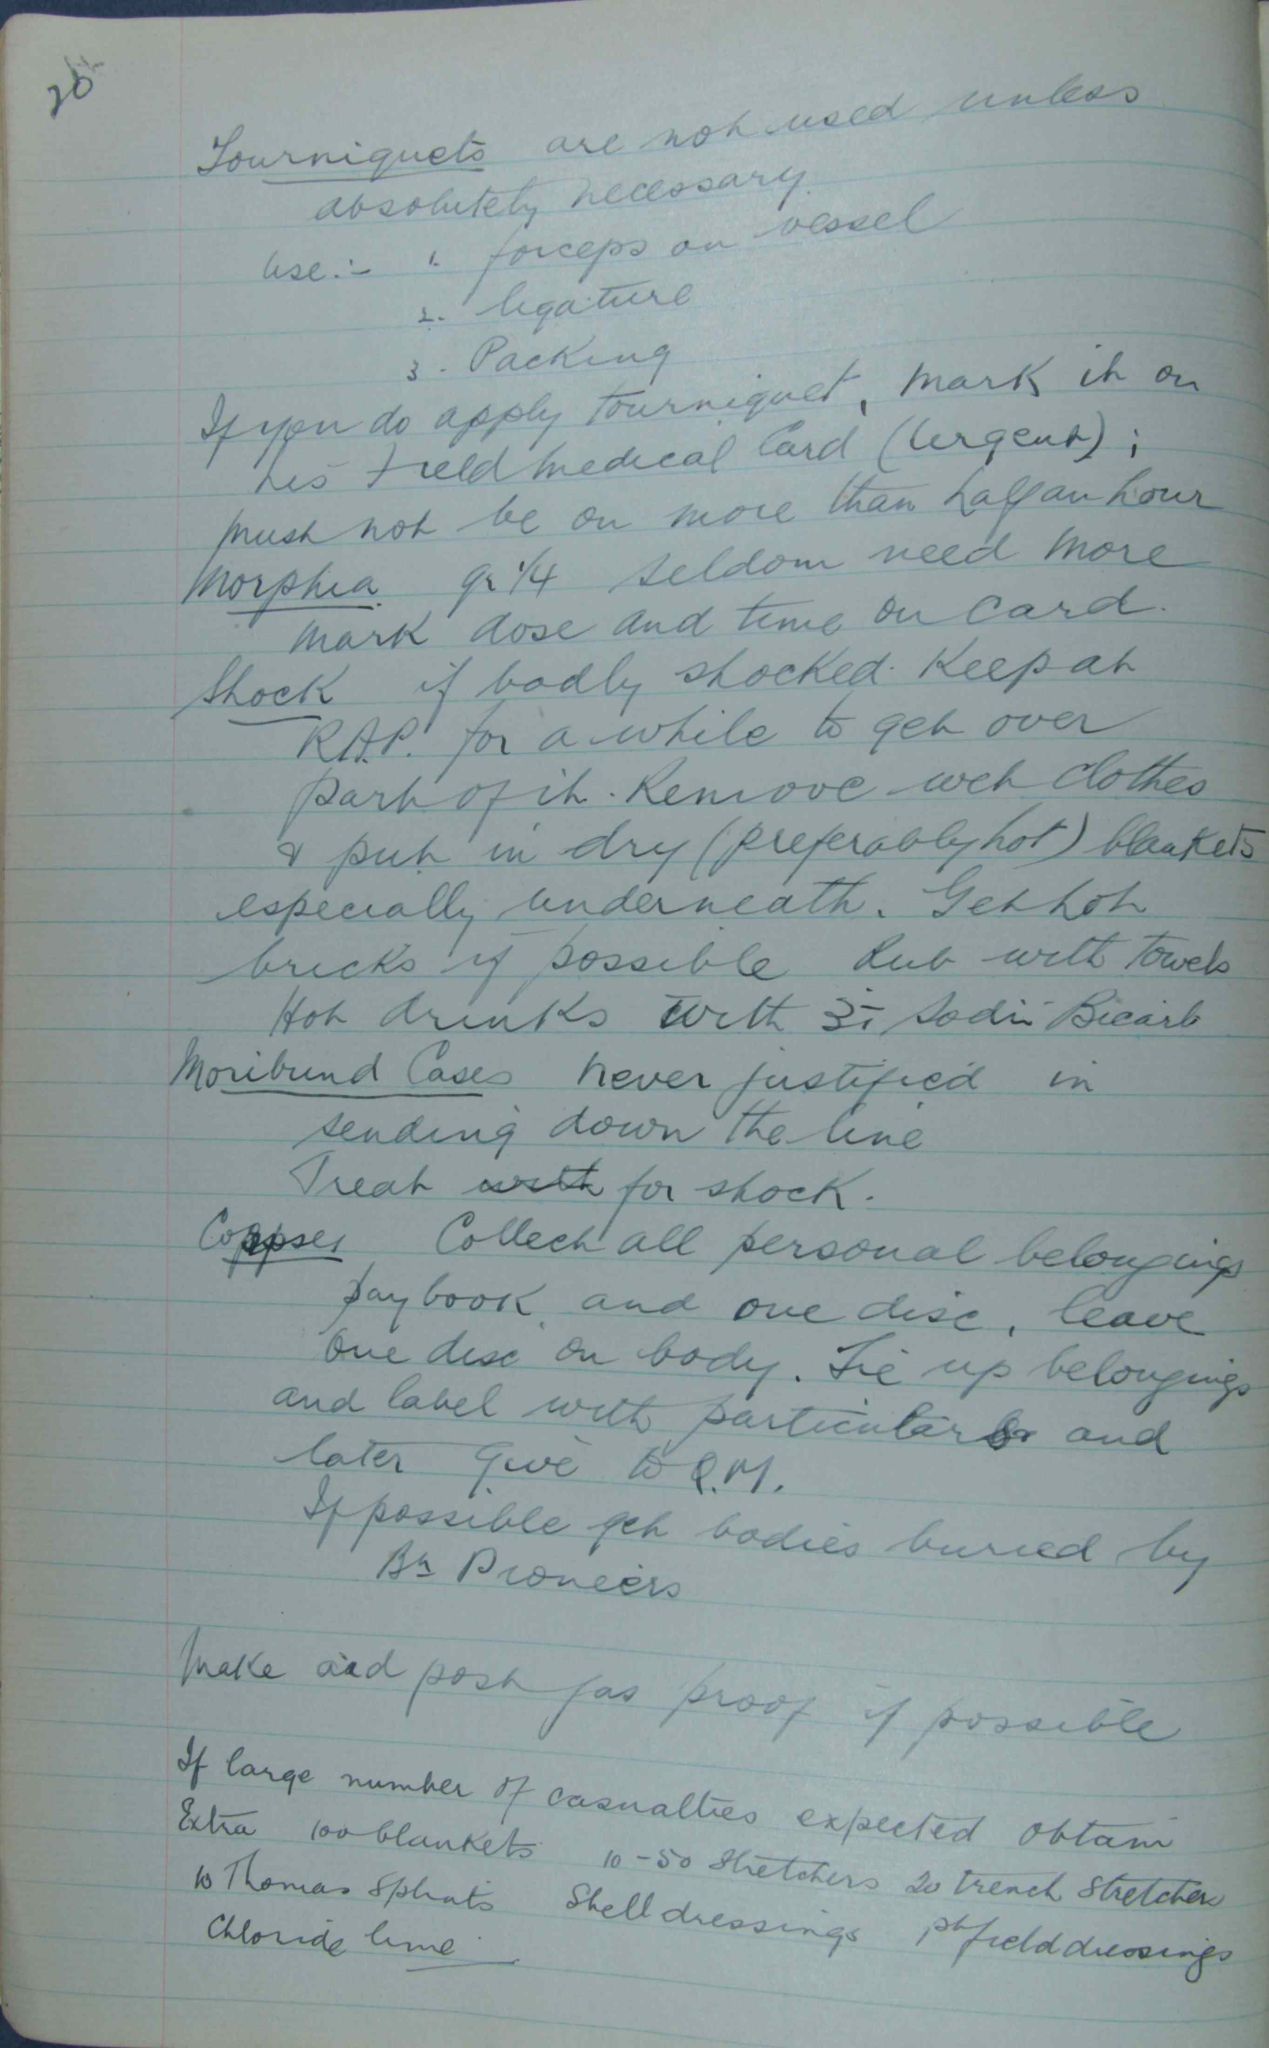 26
Tourniquets are not used unless
absolutely necessary.
Use:- 1. forceps on vessel
2. ligature
3. Packing
If you do apply tourniquet, mark it on
his Field Medical Card (Urgent);
must not be on more than half an hour
Morphia. gr 1/4 seldom need more
mark dose and time on card.
Shock if badly shocked. Keep at
R.A.P. for a while to get over
part of it. Remove wet clothes
& put in dry (preferably hot) blankets
especially underneath. Get hot
bricks if possible Rub with towels
Hot drinks with ʒi Sodii Bicarb
Moribund Cases never justified in
sending down the line
Treat with for shock.
Corpses Collect all personal belongings
paybook and one disc, leave
one disc on body. Tie up belongings
and label with particulars and
later give to Q.M.
If possible get bodies buried by
Bn Pioneers
Make aid post gas proof if possible
If large number of casualties expected obtain
Extra 100 blankets 10-50 stretchers 20 trench stretchers
10 Thomas Splints Shell dressings 1st field dressings
Chloride lime